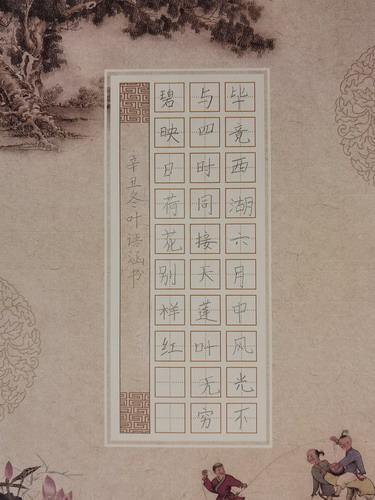 毕竟西湖六月中风光不
与四时同接天莲叶无穷
碧映日荷花别样红
辛丑冬叶语涵书